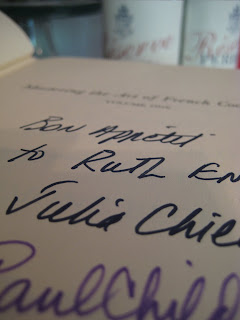 Mastering the Art of French
VOLUME ONE
Bon Appétit
to Ruth
Julia Chil
Paul Child